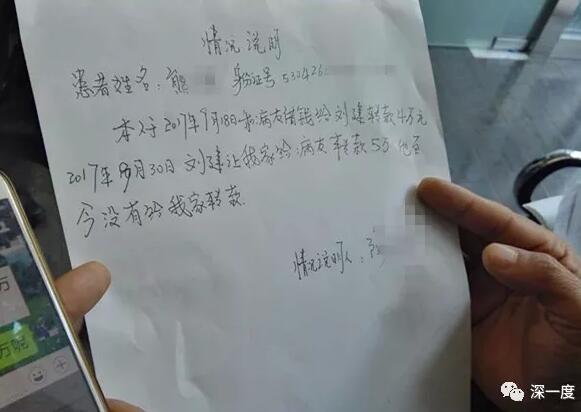 情况说明
患者姓名：熊 身份证号 532426
本人于2017年9月18日 病友借钱给刘建转款4万元
2017年9月30日 刘建让我家给病友转款5万 他至
今没有给我家转款.
情况说明人：
万呢
深一度